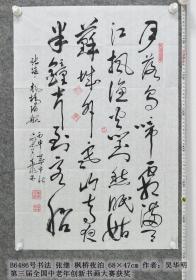 月落烏啼霜滿天
江楓漁火對愁眠姑
蘇城外寒山寺夜
半鐘聲到客船
張繼 楓橋夜泊
B6486号书法 张继 枫桥夜泊 68×47cm 作者：吴华明
第三届全国中老年创新书画大赛获奖